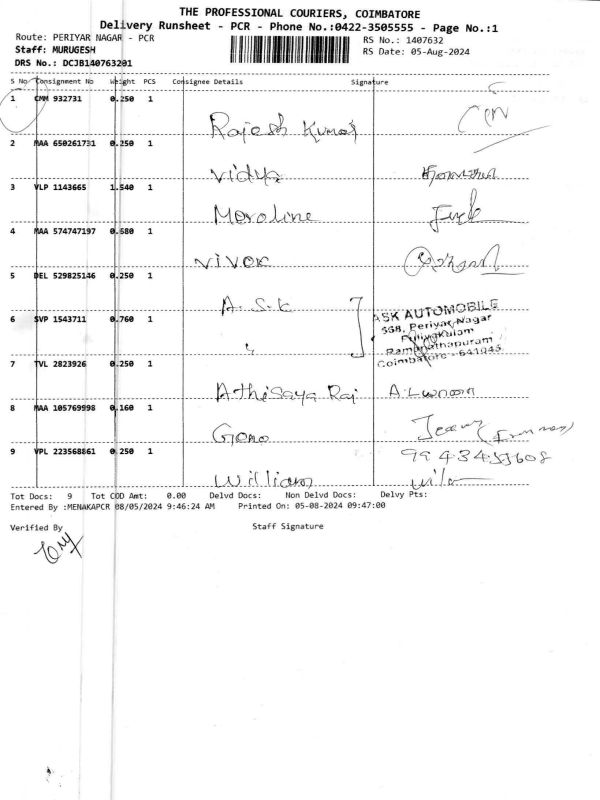 THE PROFESSIONAL COURIERS, COIMBATORE
Delivery Runsheet - PCR - Phone No.:0422-3505555 - Page No.:1
Route: PERIYAR NAGAR - PCR
RS No.: 1407632
Staff: MURUGESH
RS Date: 05-Aug-2024
DRS No.: DCJB140763201
S No Consignment No Weight PCS Consignee Details Signature
1 CMM 932731 0.250 1
Rajesh Kumar
2 MAA 650261731 0.250 1
Vidya
3 VLP 1143665 1.540 1
Meroline
4 MAA 574747197 0.680 1
Vivek
5 DEL 529825146 0.250 1
A.S.K
ASK AUTOMOBILE
6 SVP 1543711 0.760 1
568, Periyar Nagar
Puliyakulam
"
Ramanathapuram
Coimbatore - 641045
7 TVL 2823926 0.250 1
Athisaya Raj
8 MAA 105769998 0.160 1
9 VPL 223568861 0.250 1
William
Tot Docs: 9 Tot COD Amt: 0.00 Delvd Docs: Non Delvd Docs: Delvy Pts:
Entered By :MENAKAPCR 08/05/2024 9:46:24 AM Printed On: 05-08-2024 09:47:00
Verified By Staff Signature